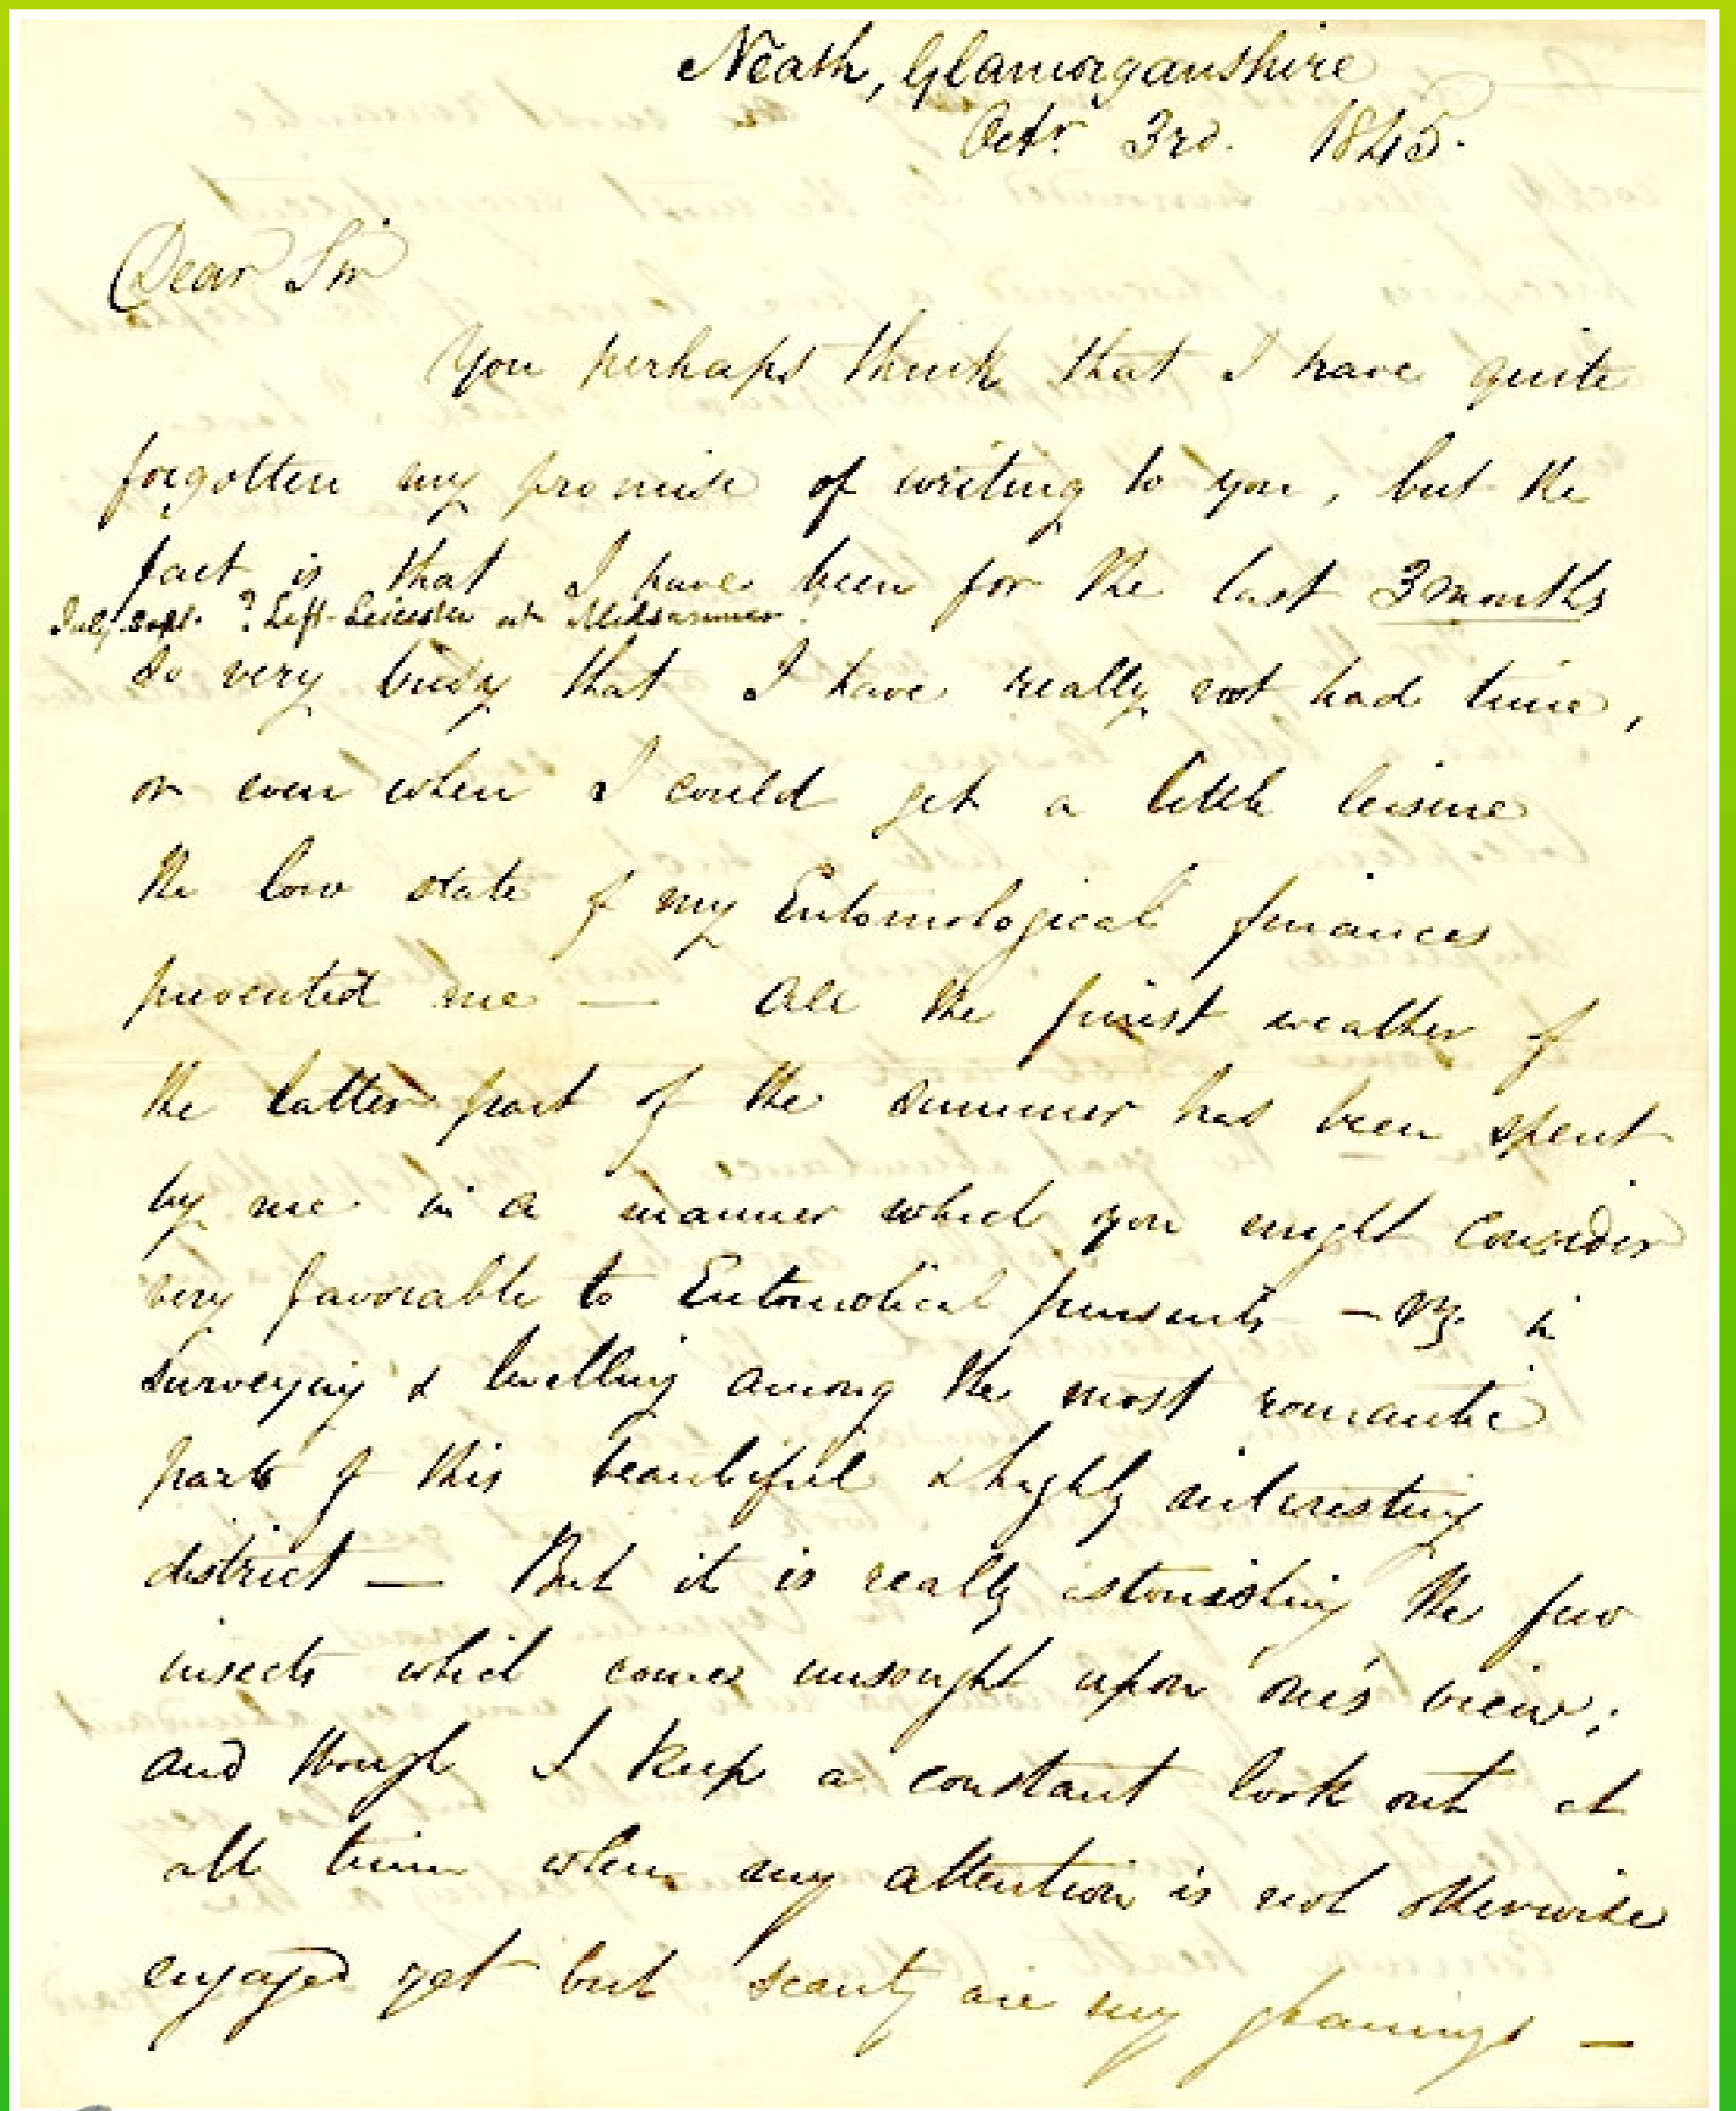 Neath, Glamorganshire
Octr. 3rd. 1845.
Dear Sir
You perhaps think that I have quite
forgotten my promise of writing to you, but the
fact is that I have been for the last 3 months
July Sept. ? Left Leicester at Midsummer?
so very busy that I have really not had time,
or even when I could get a little leisure
the low state of my Entomological finances
prevented me — All the finest weather of
the latter part of the summer has been spent
by me in a manner which you might consider
very favorable to Entomolical pursuits — viz. in
surveying & levelling among the most romantic
parts of this beautiful & highly interesting
district — But it is really astonishing the few
insects which comes unsought upon one's view;
and though I keep a constant look out at
all times when my attention is not otherwise
engaged yet but scanty are my gleanings —